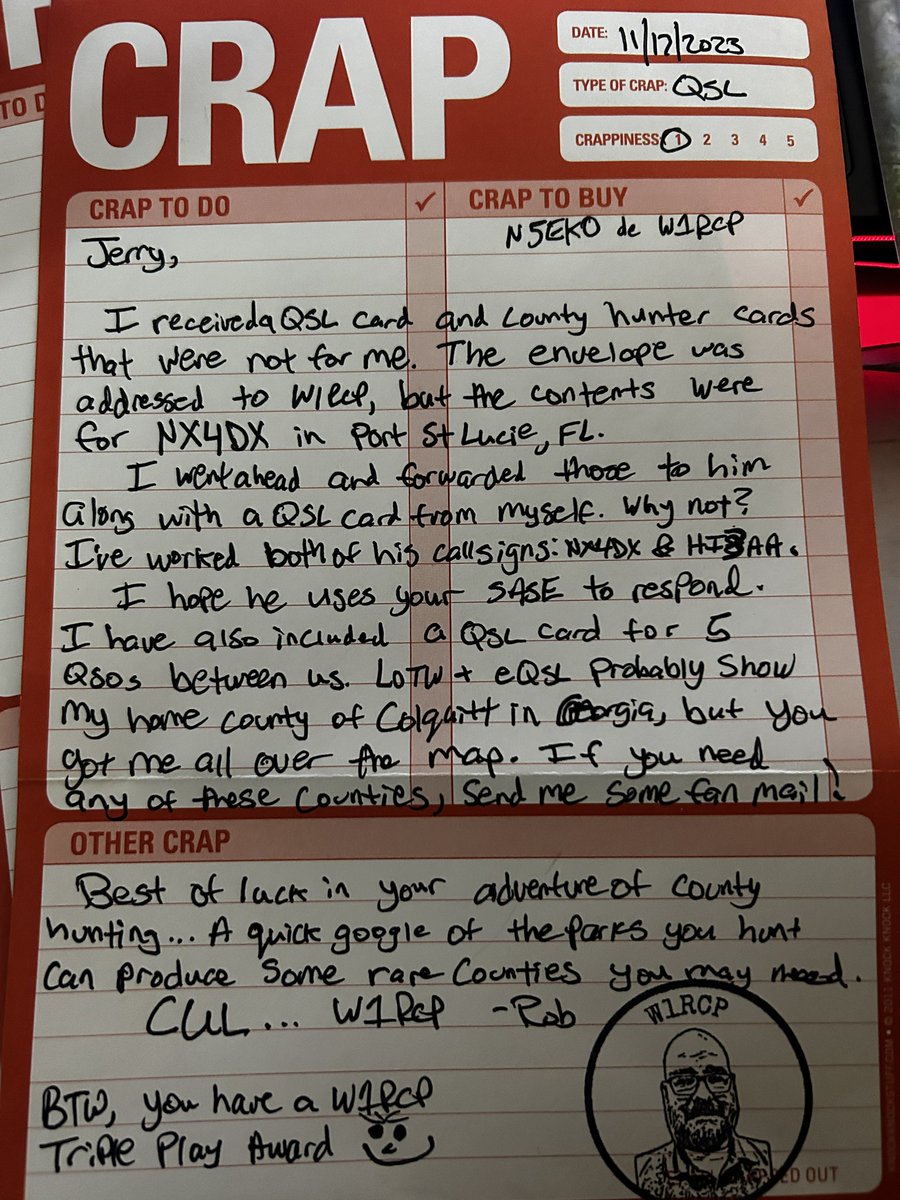 CRAP
DATE: 11/17/2023
TYPE OF CRAP: QSL
CRAPPINESS: 1 2 3 4 5
TO D
CRAP TO DO ✓
CRAP TO BUY ✓
N5EKO de W1RCP
Jerry,
I received a QSL card and county hunter cards
that were not for me. The envelope was
addressed to W1RCP, but the contents were
for NX4DX in Port St Lucie, FL.
I went ahead and forwarded those to him
along with a QSL card from myself. Why not?
I've worked both of his callsigns: NX4DX & HI3AA.
I hope he uses your SASE to respond.
I have also included a QSL card for 5
QSOs between us. LoTW + eQSL probably show
my home county of Colquitt in Georgia, but you
got me all over the map. If you need
any of these counties, send me some fan mail!
OTHER CRAP
Best of luck in your adventure of county
hunting... A quick google of the parks you hunt
can produce some rare counties you may need.
CUL... W1RCP -Rob
W1RCP
BTW, you have a W1RCP
Triple Play Award
ED OUT
KNOCKKNOCKSTUFF.COM • © 2011 KNOCK KNOCK LLC